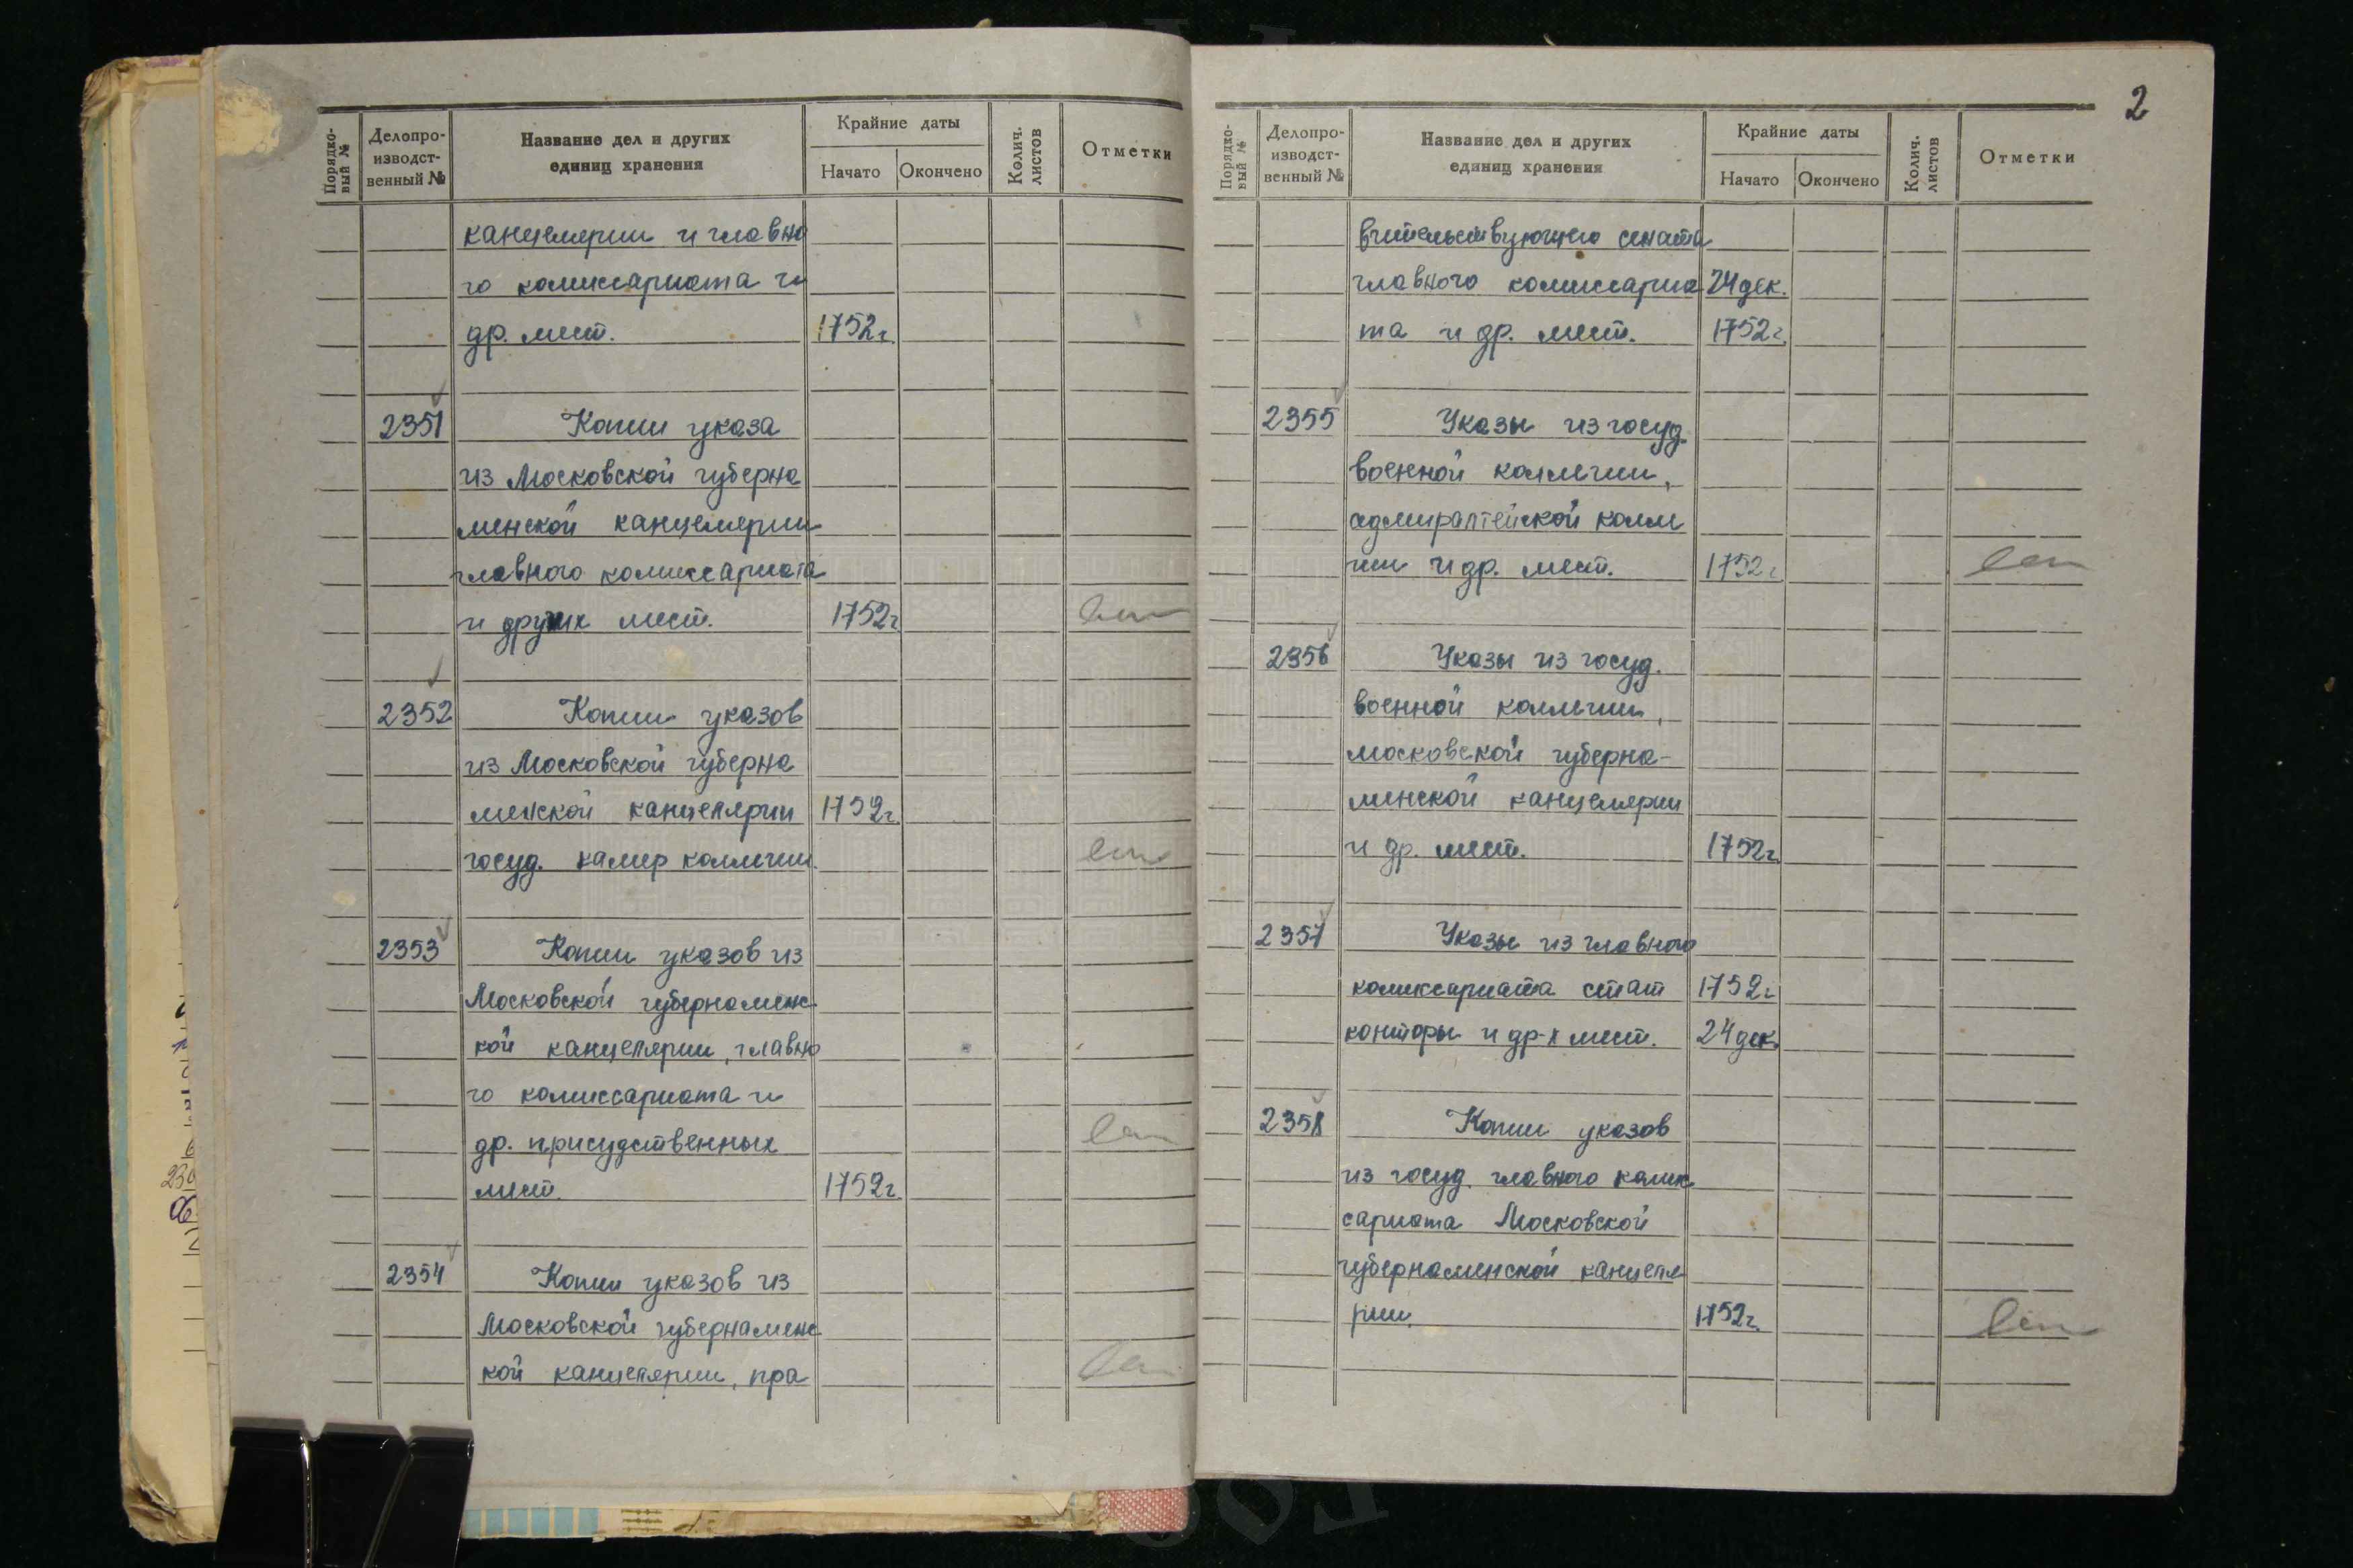 Порядко-
вый №
Делопро-
изводст-
венный №
Название дел и других
единиц хранения
Крайние даты
Начато
Окончено
Колич.
листов
Отметки
канцелярии и главно
го комиссариата и
др. мест. 1752г.
2351 Копии указа
из Московской губерна
менской канцелярии
главного комиссариата
и других мест. 1752г
2352 Копии указов
из Московской губерна
менской канцелярии 1752г.
госуд. камер коллегии.
2353 Копии указов из
Московской губернаменс
кой канцелярии, главно
го комиссариата и
др. присудственных
мест. 1752г.
2354 Копии указов из
Московской губернаменс
кой канцелярии, пра
2
Порядко-
вый №
Делопро-
изводст-
венный №
Название дел и других
единиц хранения
Крайние даты
Начато
Окончено
Колич.
листов
Отметки
вительствующего сената
главного комиссариа 24 дек.
та и др. мест. 1752г.
2355 Указы из госуд.
военной коллегии,
адмиралтейской колле
гии и др. мест. 1752г
2356 Указы из госуд.
военной коллегии,
московской губерна-
менской канцелярии
и др. мест. 1752г.
2357 Указы из главного
комиссариата стат 1752г
конторы и др-х мест. 24 дек.
2358 Копии указов
из госуд. главного комис
сариата Московской
губернаменской канцеля
рии. 1752г.